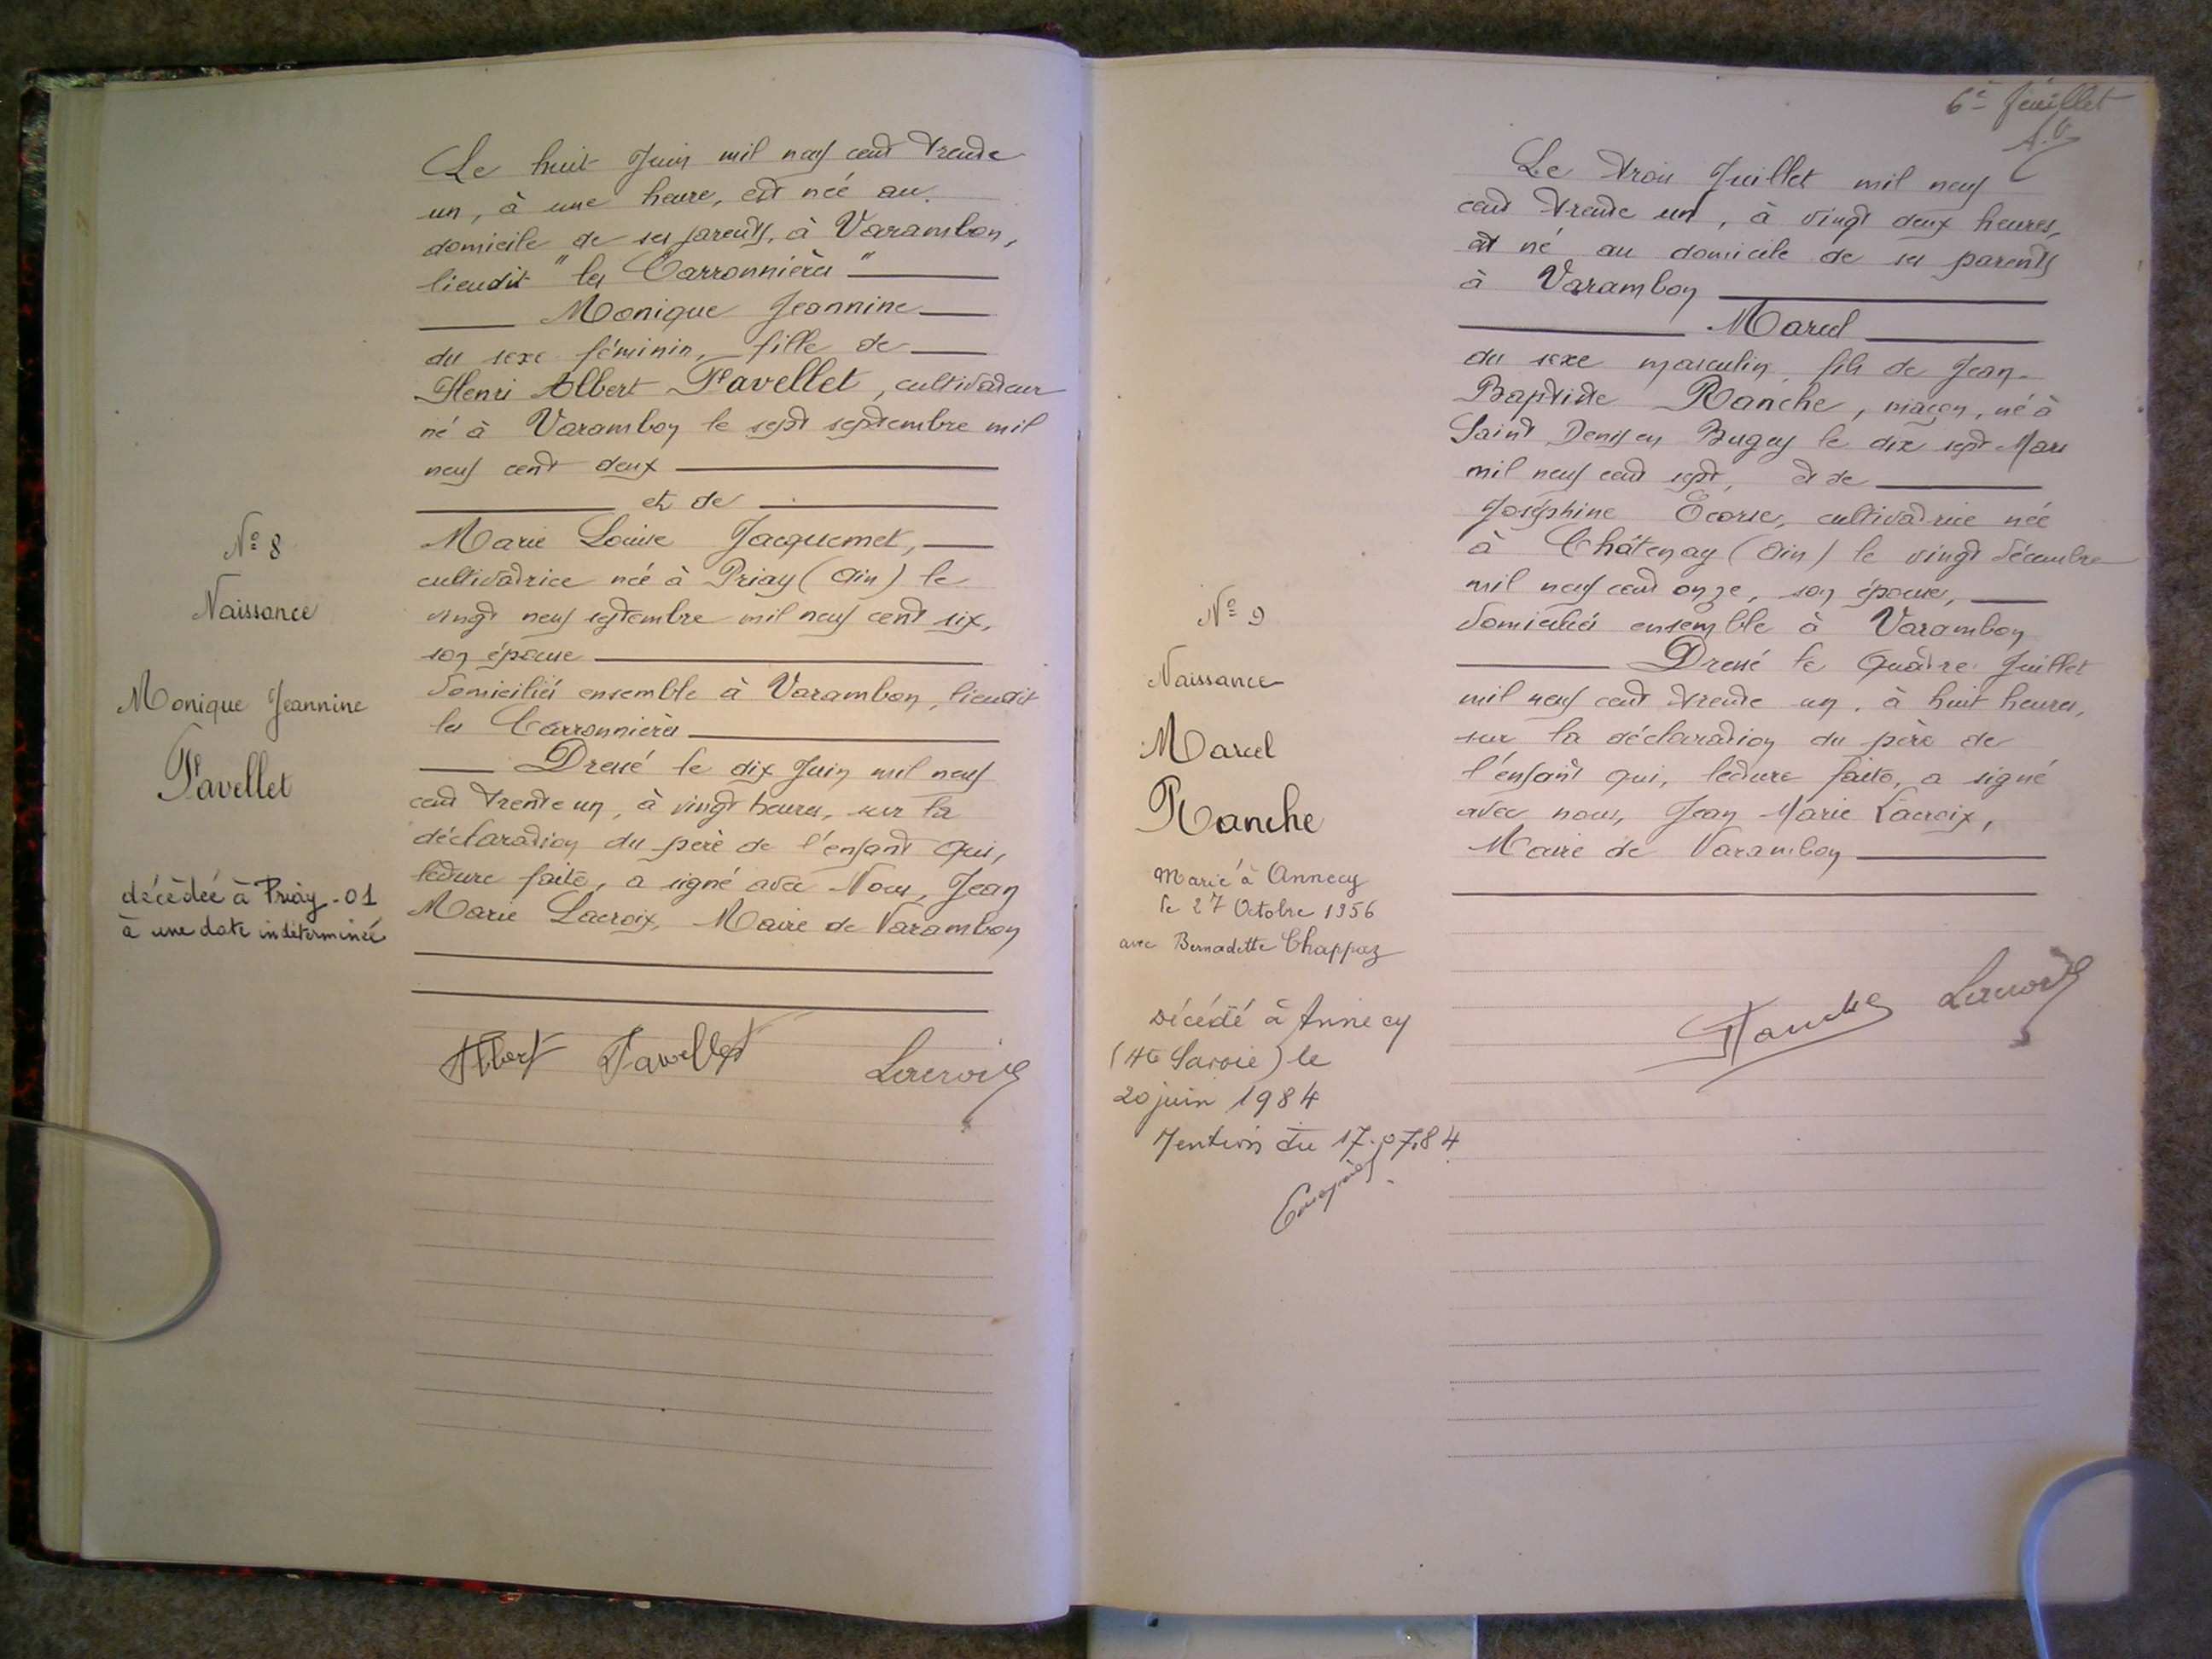 Le huit Juin mil neuf cent trente
un, à une heure, est née au
domicile de ses parents, à Varambon,
lieudit "les Carronnières"
Monique Jeannine
du sexe féminin, fille de
Henri Albert Favellet, cultivateur
né à Varambon le sept septembre mil
neuf cent deux
et de
Marie Louise Jacquemet,
cultivatrice née à Priay (Ain) le
vingt neuf septembre mil neuf cent six,
son épouse
domiciliés ensemble à Varambon, lieudit
les Carronnières
Dressé le dix Juin mil neuf
cent trente un, à vingt heures, sur la
déclaration du père de l'enfant qui,
lecture faite, a signé avec Nous, Jean
Marie Lacroix, Maire de Varambon
Albert Favellet Lacroix
N° 8
Naissance
Monique Jeannine
Favellet
décédée à Priay - 01
à une date indéterminée
6e feuillet
Le trois Juillet mil neuf
cent trente un, à vingt deux heures,
est né au domicile de ses parents
à Varambon
Marcel
du sexe masculin, fils de Jean-
Baptiste Ranche, maçon, né à
Saint Denis en Bugey le dix sept Mars
mil neuf cent sept, et de
Joséphine Ecorse, cultivatrice née
à Châtenay (Ain) le vingt décembre
mil neuf cent onze, son épouse,
domiciliés ensemble à Varambon
Dressé le Quatre Juillet
mil neuf cent trente un, à huit heures,
sur la déclaration du père de
l'enfant qui, lecture faite, a signé
avec nous, Jean Marie Lacroix,
Maire de Varambon
Ranche Lacroix
N° 9
Naissance
Marcel
Ranche
Marié à Annecy
le 27 Octobre 1956
avec Bernadette Chappaz
Décédé à Annecy
(Hte Savoie) le
20 juin 1984
Mention du 17.07.84